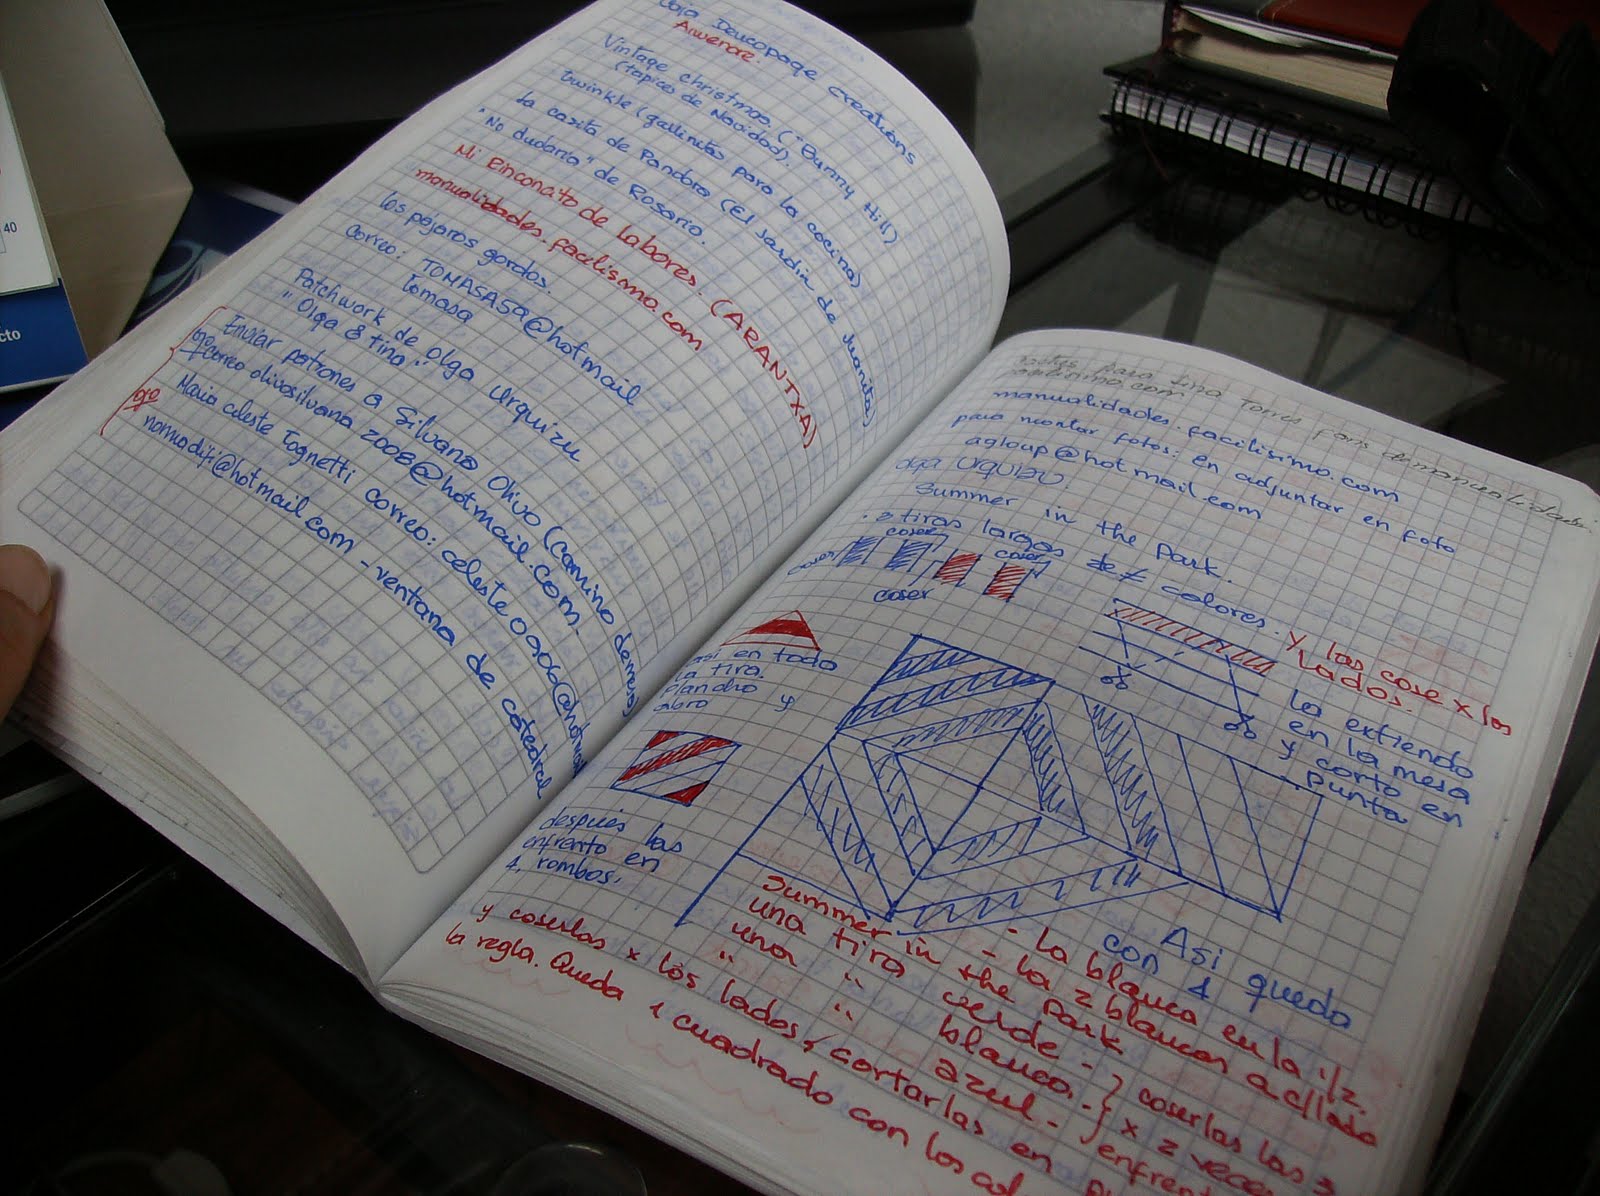 Caja Decopage creations
Anuence.
Vintage christmas. ("Bunny Hill)
(tapices de Navidad).
twinkle (gallinitas para la cocina)
la casita de Pandora (El Jardin de Juanita)
"No dudaria" de Rosario.
Mi Rinconcito de labores. (ARANTXA)
manualidades.facilisimo.com
los pájaros gordos.
Correo: TOMASASA@hotmail
Tomasa
Patchwork de Olga Urquizu
"Olga & tina".
Enviar patrones a Silvana Olivo (camino
correo olivosilvana2008@hotmail.com.
Maria celeste Tognetti correo: celeste
nomudiji@hotmail.com - ventana de catedral
para tina Torres
manualidades.facilisimo.com
para montar fotos: en adjuntar en foto
agloup@hotmail.com
Olga Urquizu
Summer in the park.
. 2 tiras largas de ≠ colores. y las cose x los
lados.
coser
coser
coser
coser
los extiendo
en la mesa
y corto en
punta
asi en todo
la tira.
plancho y
abro
después las
enfrento en
4 rombos.
Asi queda
con 4
- la blanca en la 1/2.
- la 2 blancas a c/lado
Summer in the park
una tira verde -
una " " blanco. - } coserlas las 3
" " azul - } x 2 veces
y coserlas x los lados, cortarlas en
la regla. Queda 1 cuadrado con los col
40
cto